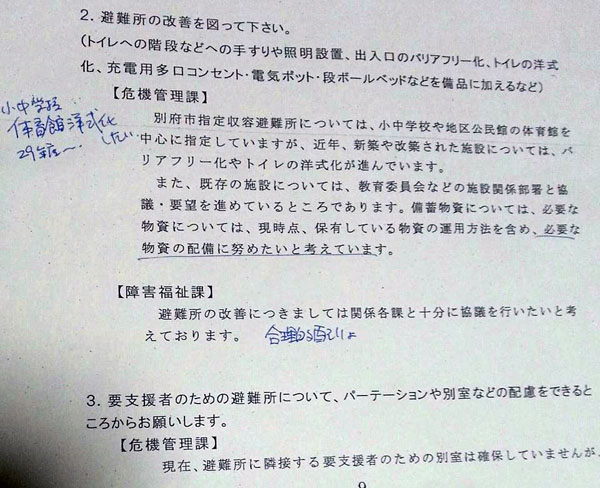 2. 避難所の改善を図って下さい。
(トイレへの階段などへの手すりや照明設置、出入口のバリアフリー化、トイレの洋式
化、充電用多口コンセント・電気ポット・段ボールベッドなどを備品に加えるなど)
【危機管理課】
小中学校
体育館洋式化
したい
29年度〜
別府市指定収容避難所については、小中学校や地区公民館の体育館を
中心に指定していますが、近年、新築や改築された施設については、バ
リアフリー化やトイレの洋式化が進んでいます。
また、既存の施設については、教育委員会などの施設関係部署と協
議・要望を進めているところであります。備蓄物資については、必要な
物資については、現時点、保有している物資の運用方法を含め、必要な
物資の配備に努めたいと考えています。
【障害福祉課】
避難所の改善につきましては関係各課と十分に協議を行いたいと考
えております。
合理的配りょ
3. 要支援者のための避難所について、パーテーションや別室などの配慮をできると
ころからお願いします。
【危機管理課】
現在、避難所に隣接する要支援者のための別室は確保していませんが、
9